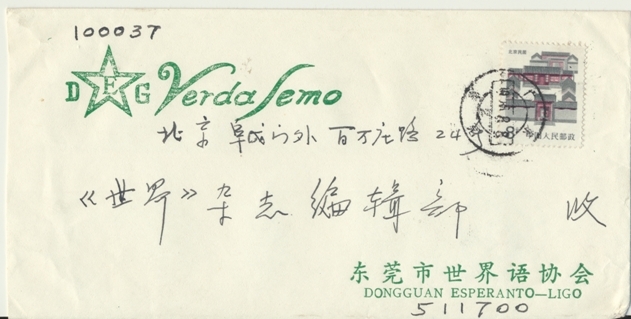 100037
D E G Verda Semo
北京阜成门外百万庄路24
《世界》杂志编辑部 收
东莞市世界语协会
DONGGUAN ESPERANTO—LIGO
511700
北京民居
中国人民邮政